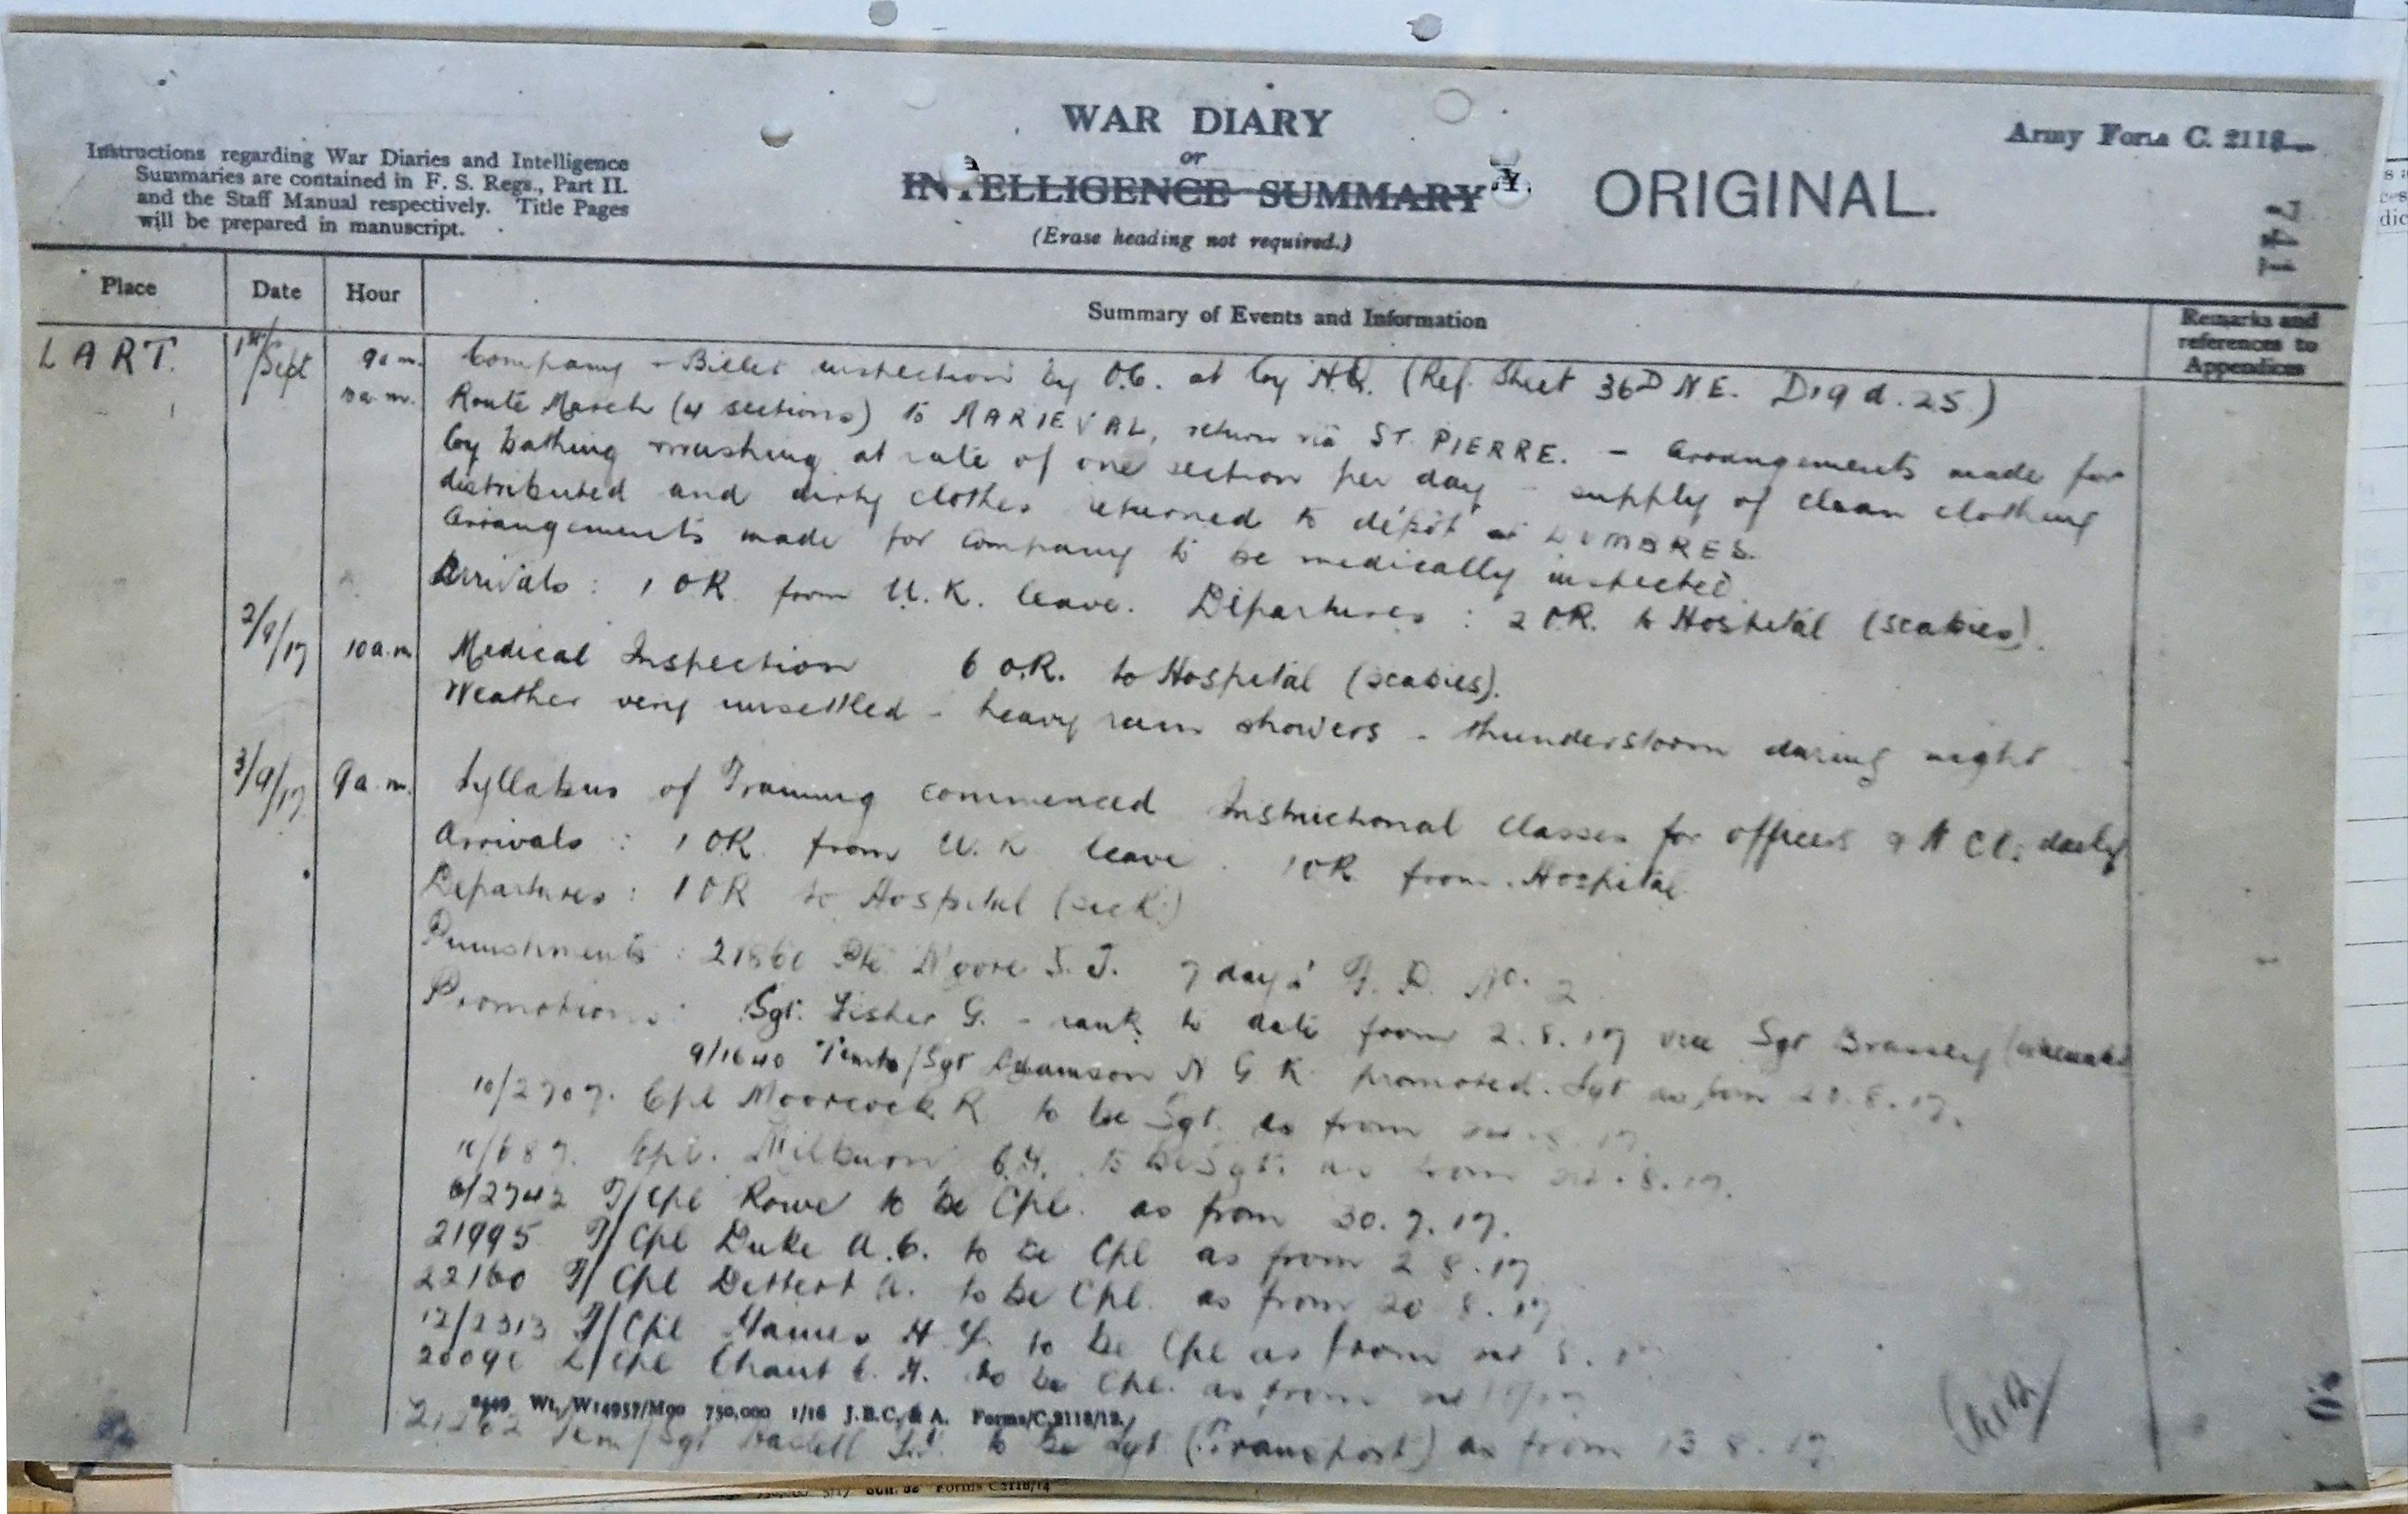 WAR DIARY
or
INTELLIGENCE SUMMARY
(Erase heading not required.)
ORIGINAL.
Army Form C. 2118
741
Instructions regarding War Diaries and Intelligence
Summaries are contained in F. S. Regs., Part II.
and the Staff Manual respectively. Title Pages
will be prepared in manuscript.
Place Date Hour Summary of Events and Information Remarks and references to Appendices
LART. 1st/Sept 9 a.m. Company - Billet inspection by O.C. at Coy H.Q. (Ref. Sheet 36D N E. D19 d. 25.)
10 a.m. Route March (4 sections) to MARIEVAL, return via ST PIERRE. - Arrangements made for
Coy bathing at rate of one section per day - supply of clean clothing
distributed and dirty clothes returned to dépôt at LUMBRES.
Arrangements made for Company to be medically inspected.
Arrivals : 1 OR from U.K. leave. Departures : 2 OR. to Hospital (scabies).
2/9/17 10 a.m Medical Inspection 6 O.R. to Hospital (scabies).
Weather very unsettled - heavy rain showers - thunderstorm during night
3/9/17 9 a.m. Syllabus of Training commenced Instructional classes for officers & N C Os daily
Arrivals : 1 OR from U.K leave. 1 OR from Hospital
Departures : 1 OR to Hospital (sick)
Punishments : Pte Moore S. J. 7 days F. P. No. 2
Promotions : Sgt. Fisher G. - rank to date from 2.8.17 vice Sgt Brassey
9/1640 Temp/Sgt Adamson N G K promoted Sgt as from 20.8.17.
10/2707. Cpl Moorcock R to be Sgt. as from 8.17
Cpl. Milburn to be Sgt. as from 8.17.
2742 T/Cpl Rowe to be Cpl. as from 30.7.17.
21995 T/Cpl Duke A.C. to be Cpl as from 2 8.17
22160 T/Cpl Dettert A. to be Cpl. as from 20 8.17
12/2313 T/Cpl H. to be Cpl as from
L/Cpl Chant to be Cpl. as from
Wt. W14957/M90 750,000 1/16 J.B.C. & A. Forms/C.2118/12.
Tem/Sgt to be Sgt (Transport) as from 13 8.17
Forms C2118/14